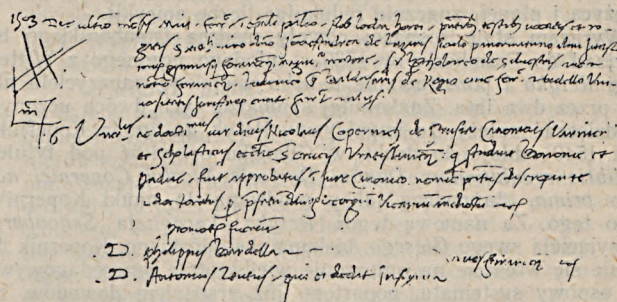 1503 Die ultimo mensis Maii ferr. in episcopali palatio, sub lodia horti, presentibus testibus vocatis et ro
gatis Spectabili viro dno Joanne Andrea de Lazaris siculo panormitano almi Jurist
gymnasii ferrariensis rectore, Ser Bartholomeo de Silvestris
notario ferrariensi, Ludovico q. Baldesaris de Regio cive ferr. et bidello Uni
versitatis Juristarum civit. ferr. et aliis
Ven.lis ac doctissimus vir dnus Nicolaus Copernich de Prusia Canonicus Varmien
et Scholasticus ecclesie S. crucis Vratislavien: qui studuit Bononie et
Padue, fuit approbatus in Jure Canonico nemine penitus discrepante
et doctoratus p. prefatum dnum Georgium Vicarium
promotores fuerunt
D. philippus Bardella
D. Antonius Leutus, qui ei dedit insignia